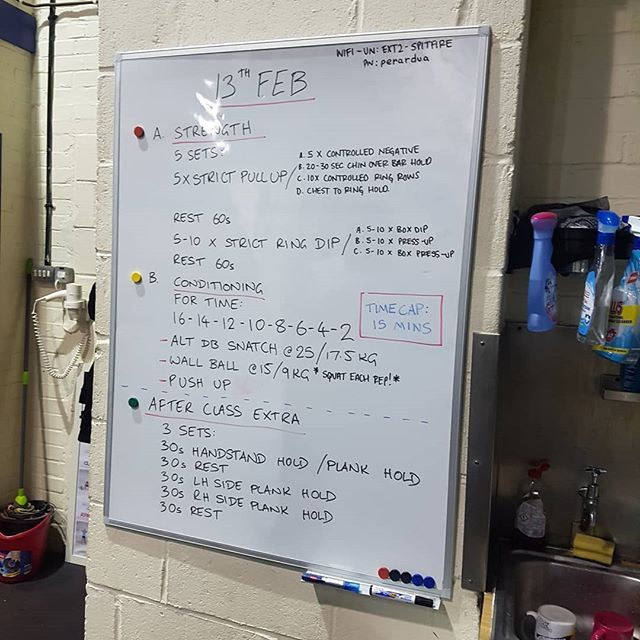 WIFI - UN: EXT2 - SPITFIRE
PW: perardua
13TH FEB
A. STRENGTH
5 SETS:
5 X STRICT PULL UP /
A. 5 X CONTROLLED NEGATIVE
B. 20-30 SEC CHIN OVER BAR HOLD
C. 10X CONTROLLED RING ROWS
D. CHEST TO RING HOLD.
REST 60s
5-10 X STRICT RING DIP /
A. 5-10 X BOX DIP
B. 5-10 X PRESS-UP
C. 5-10 X BOX PRESS-UP
REST 60s
B. CONDITIONING
FOR TIME:
16-14-12-10-8-6-4-2
TIME CAP:
15 MINS
- ALT DB SNATCH @ 25/17.5 KG
- WALL BALL @ 15/9 KG * SQUAT EACH REP! *
- PUSH UP
AFTER CLASS EXTRA
3 SETS:
30s HANDSTAND HOLD / PLANK HOLD
30s REST
30s LH SIDE PLANK HOLD
30s RH SIDE PLANK HOLD
30s REST